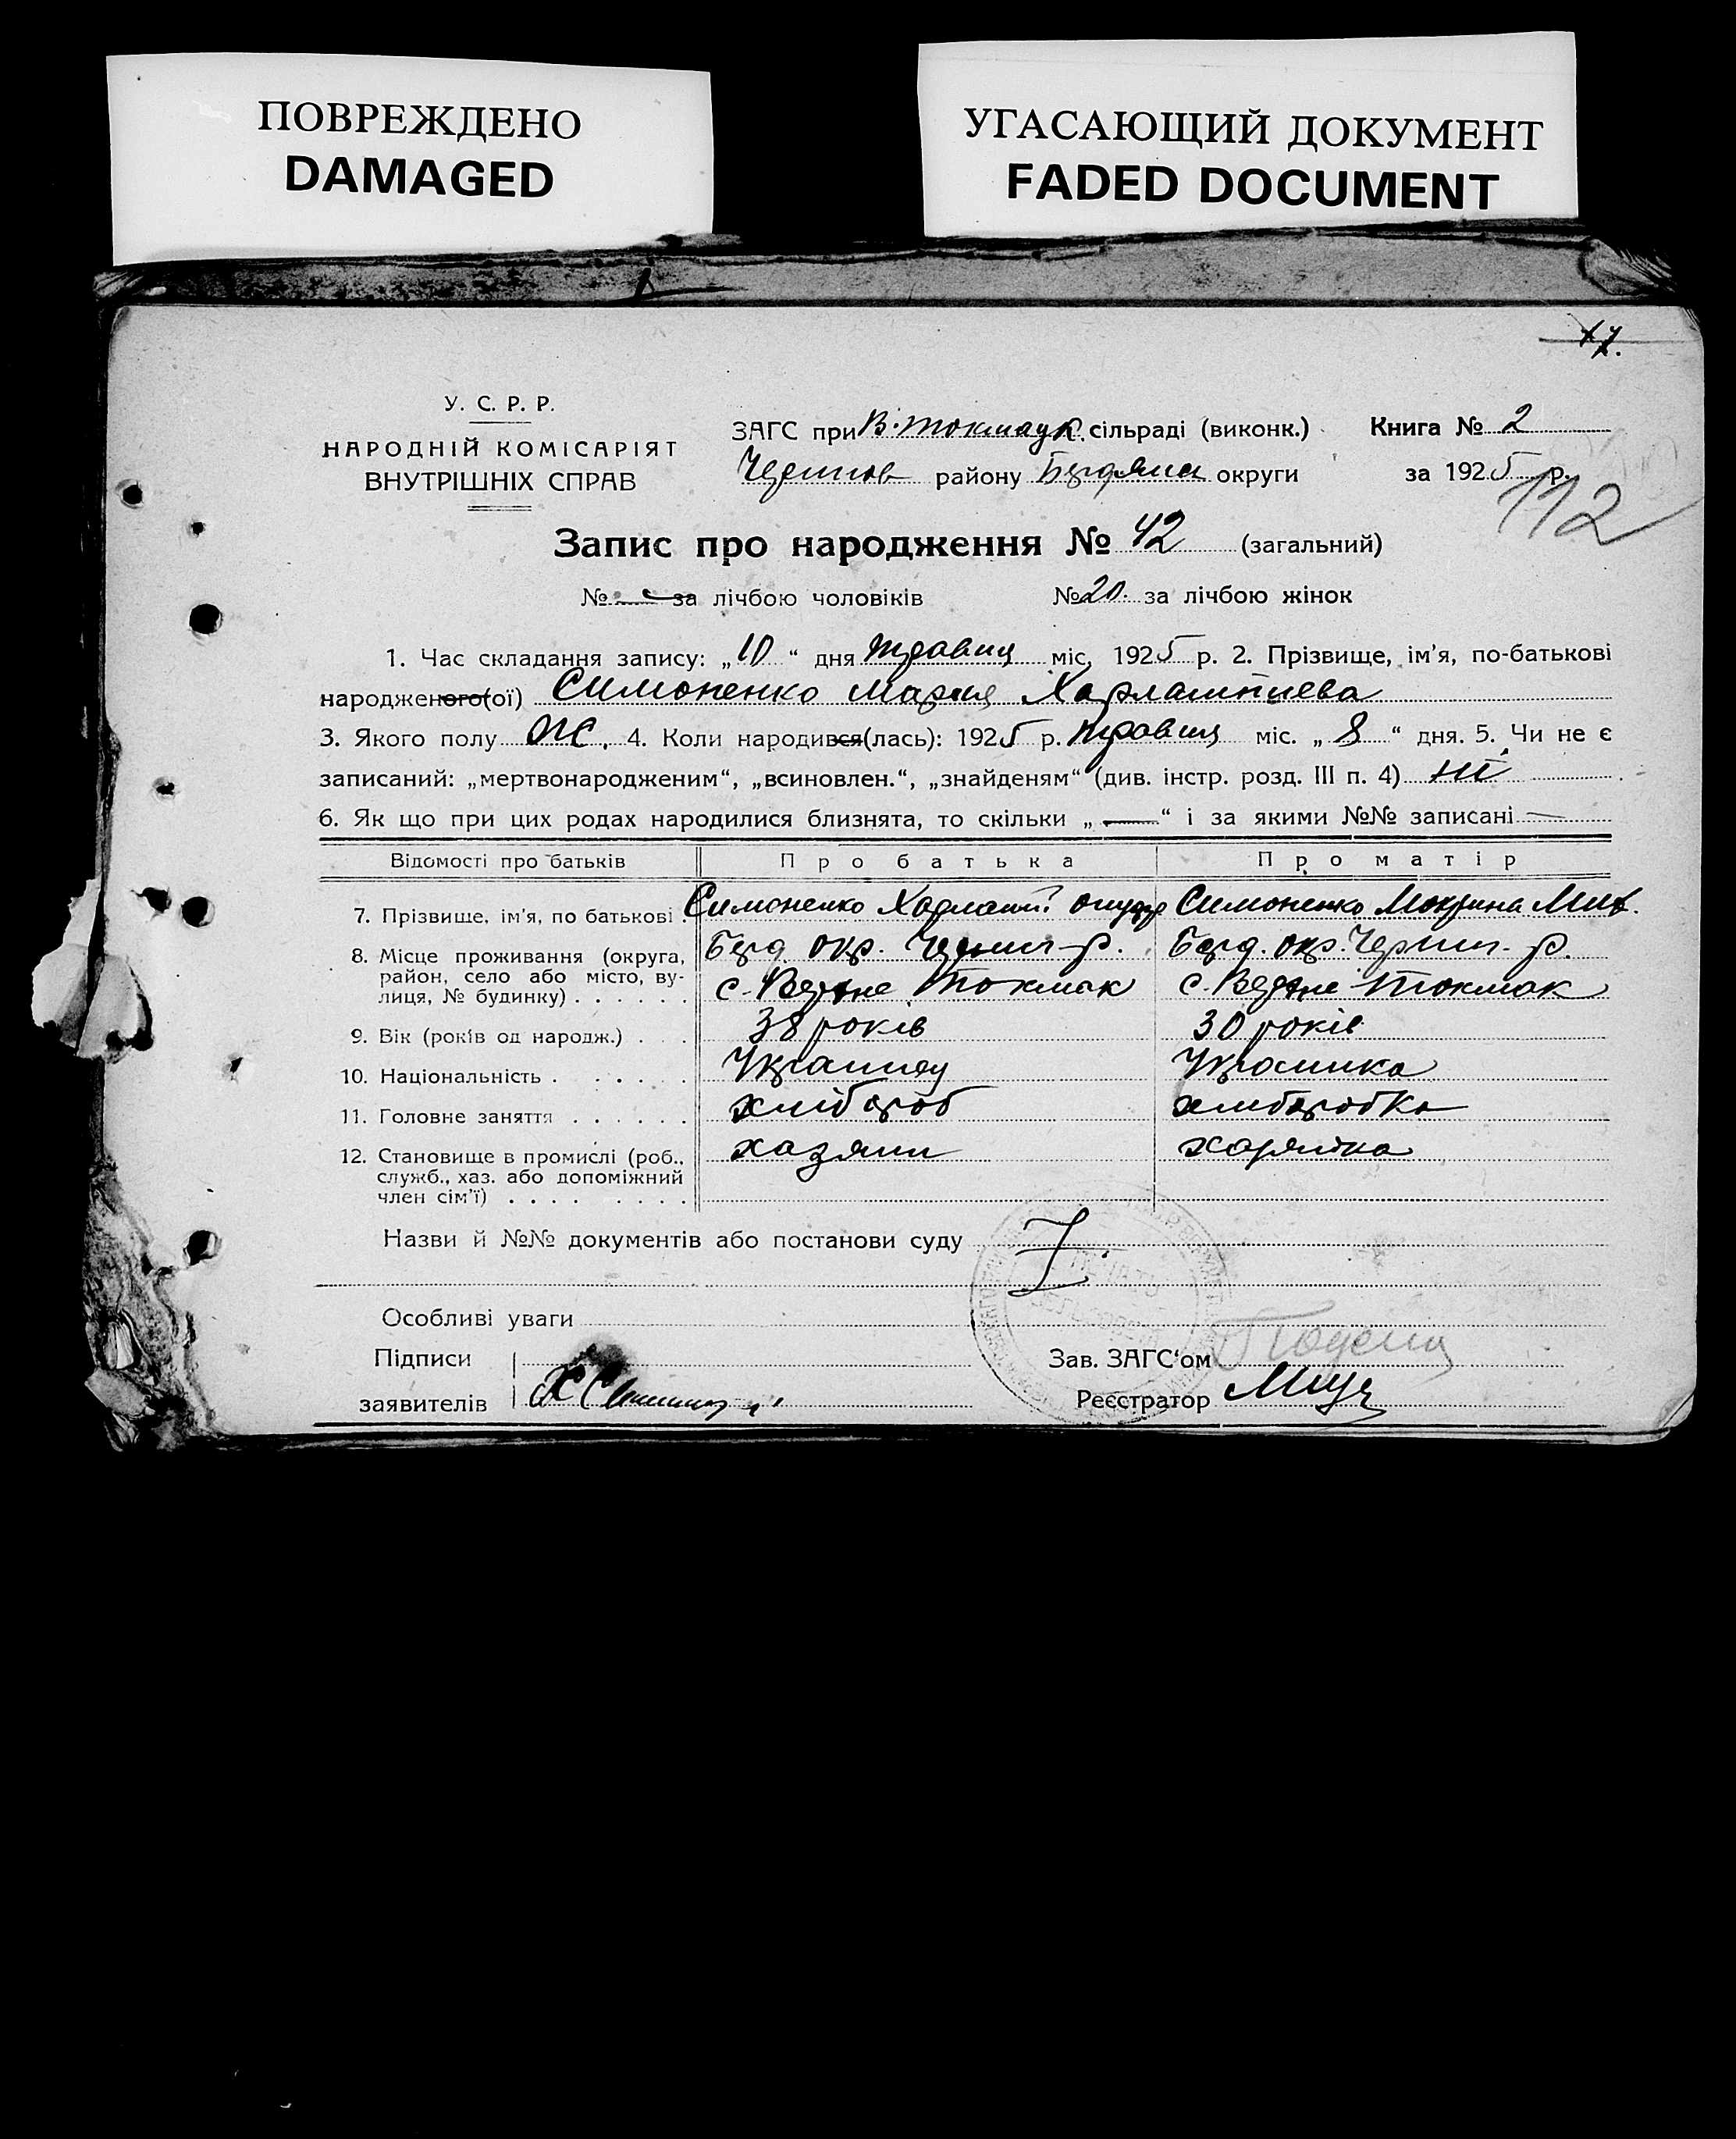 ПОВРЕЖДЕНО
DAMAGED
УГАСАЮЩИЙ ДОКУМЕНТ
FADED DOCUMENT
17.
У. С. Р. Р.
НАРОДНІЙ КОМІСАРІЯТ
ВНУТРІШНІХ СПРАВ
ЗАГС при В-Токмацк. сільраді (виконк.)
Черниг району Бердянськ округи
Книга № 2
за 1925 р.
112
Запис про народження № 42 (загальний)
№ за лічбою чоловіків №20. за лічбою жінок
1. Час складання запису: „10“ дня травня міс. 1925 р. 2. Прізвище, ім’я, по-батькові
народженого(ої) Симоненко Мария Харлампиева
3. Якого полу Ж. 4. Коли народився(лась): 1925 р. травня міс. „8“ дня. 5. Чи не є
записаний: „мертвонародженим“, „всиновлен.“, „знайденям“ (див. інстр. розд. III п. 4) ні
6. Як що при цих родах народилися близнята, то скільки „—“ і за якими №№ записані —
Відомості про батьків Про батька Про матір
7. Прізвище, ім’я, по батькові. Симоненко Харламп. Симоненко Мокрина
8. Місце проживання (округа, район, село або місто, ву-лиця, № будинку) . . . . . .
Берд. окр. Черниг р. Берд. окр. Черниг. р.
с. Верхне Токмак с. Верхне Токмак
9. Вік (років од народж.) . . . 38 років 30 років
10. Національність . . . . . . Українец Українка
11. Головне заняття . . . . . . хлібороб хлиборобка
12. Становище в промислі (роб., служб., хаз. або допоміжний член сім’ї) . . . . . . . . хазяин хазяйка
Назви й №№ документів або постанови суду
Особливі уваги
Підписи
заявителів
Зав. ЗАГС‘ом
Реєстратор